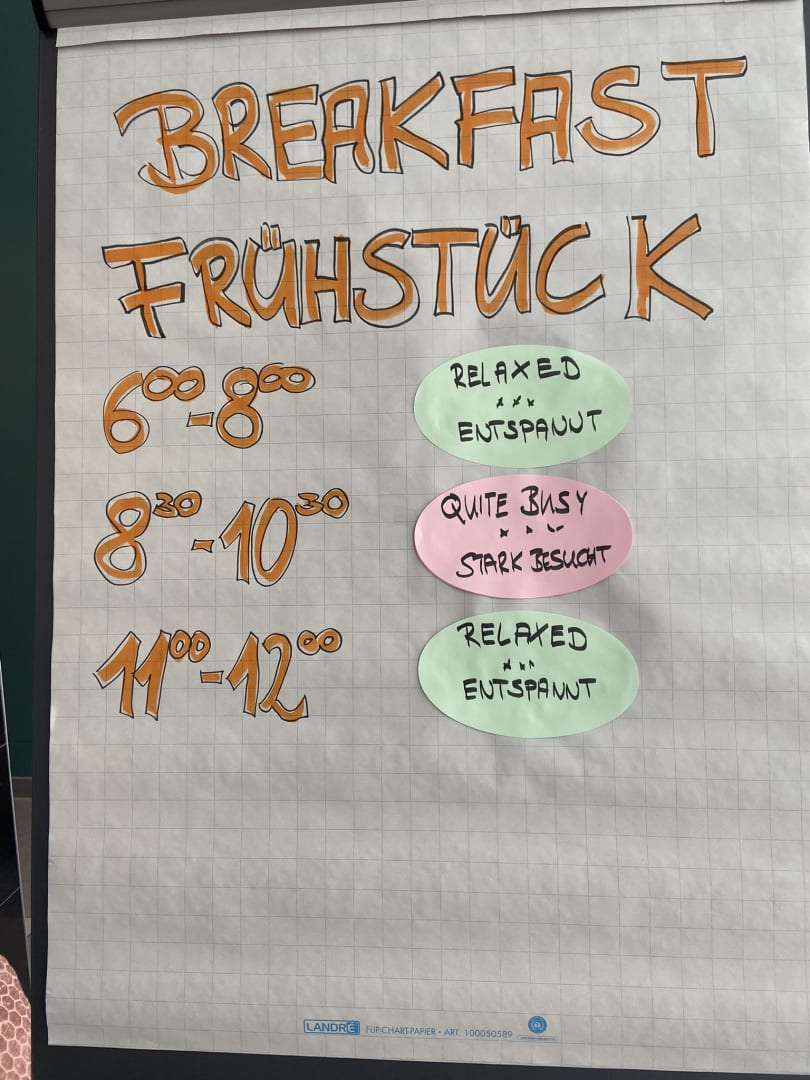 BREAKFAST
FRÜHSTÜCK
6⁰⁰-8⁰⁰
RELAXED
ENTSPANNT
8³⁰-10³⁰
QUITE BUSY
STARK BESUCHT
11⁰⁰-12⁰⁰
RELAXED
ENTSPANNT
LANDRÉ FLIP-CHART-PAPIER • ART. 100050589